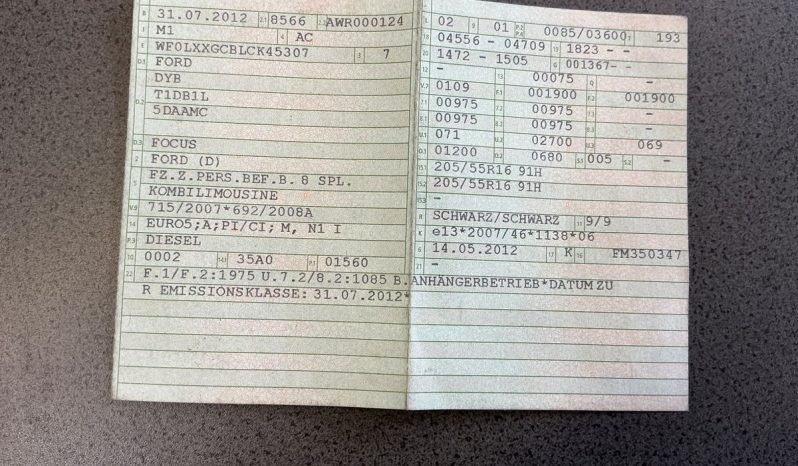 B 31.07.2012 2.1 8566 2.2 AWR000124
J M1 4 AC
E WF0LXXGCBLCK45307 3 7
D.1 FORD
DYB
D.2 T1DB1L
5DAAMC
D.3 FOCUS
2 FORD (D)
5 FZ.Z.PERS.BEF.B. 8 SPL.
KOMBILIMOUSINE
V.9 715/2007*692/2008A
14 EURO5;A;PI/CI; M, N1 I
P.3 DIESEL
10 0002 14.1 35A0 P.1 01560
L 02 9 01 P.2 P.4 0085/03600 T 193
18 04556 - 04709 19 1823 - -
20 1472 - 1505 G 001367- -
12 - 13 00075 Q -
V.7 0109 F.1 001900 F.2 001900
7.1 00975 7.2 00975 7.3 -
8.1 00975 8.2 00975 8.3 -
U.1 071 U.2 02700 U.3 069
O.1 01200 O.2 0680 S.1 005 S.2 -
15.1 205/55R16 91H
15.2 205/55R16 91H
15.3 -
R SCHWARZ/SCHWARZ 11 9/9
K e13*2007/46*1138*06
6 14.05.2012 17 K 16 FM350347
21 -
22 F.1/F.2:1975 U.7.2/8.2:1085 B.ANHÄNGERBETRIEB*DATUM ZU
R EMISSIONSKLASSE: 31.07.2012*